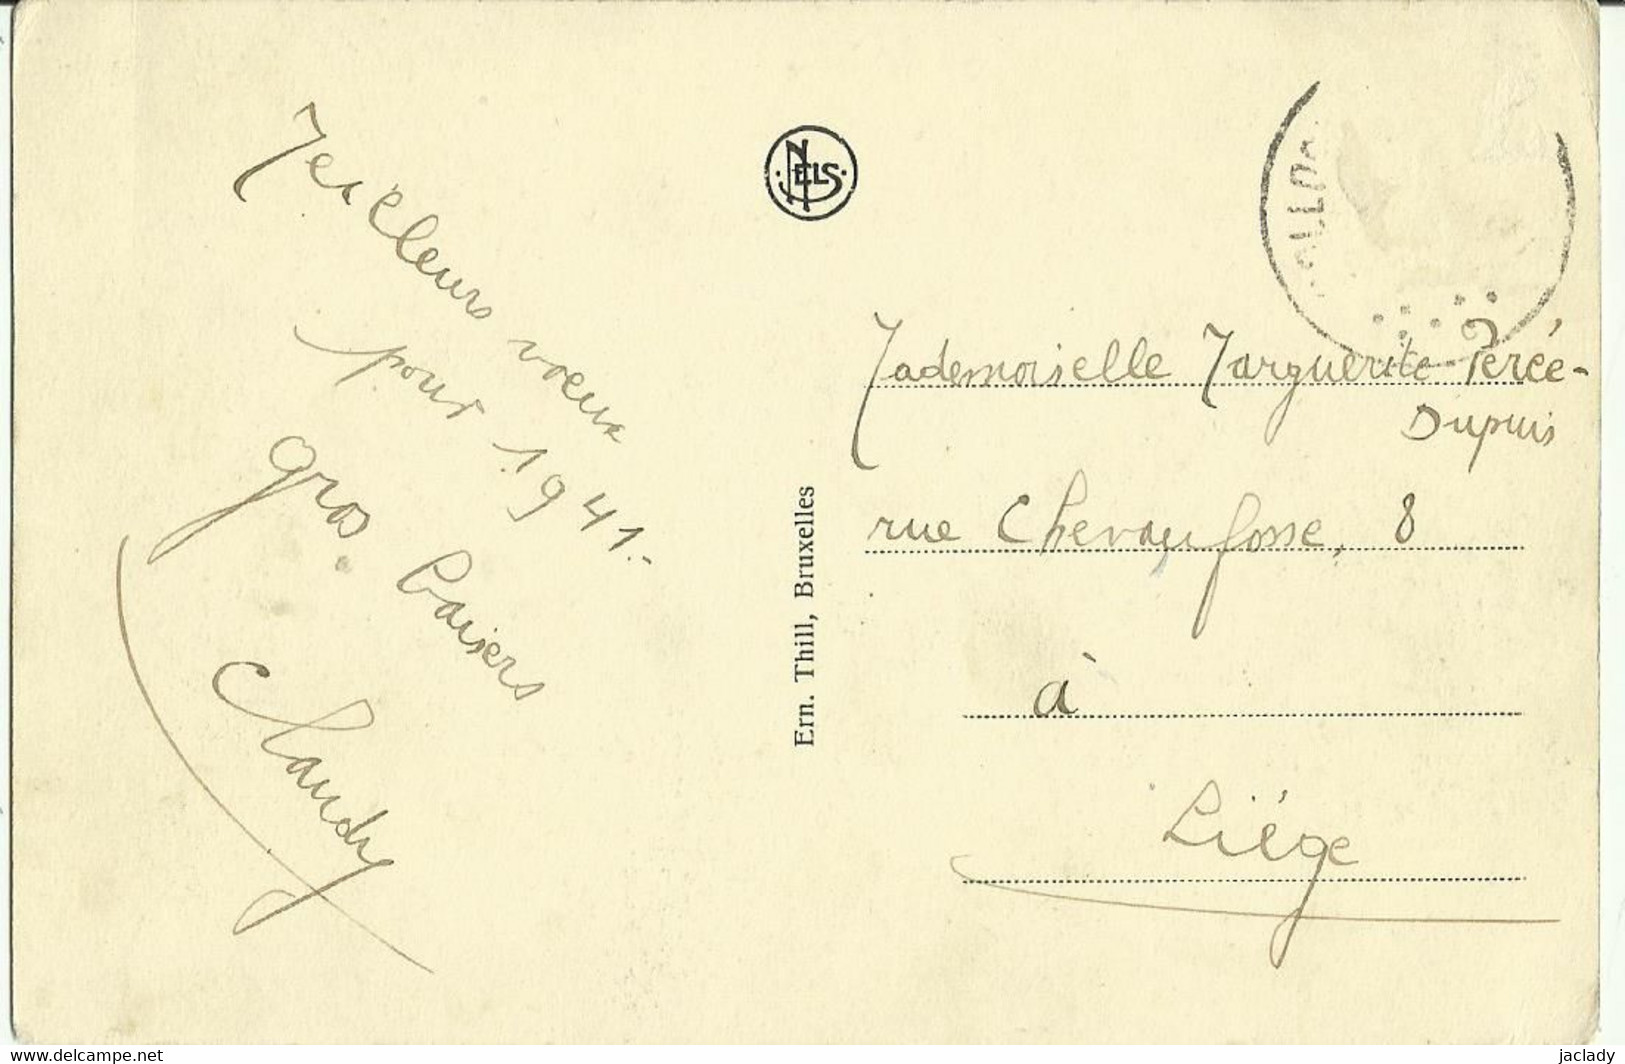 Meilleurs voeux
pour 1941.-
gros baisers
Claudy
NELS
Ern. Thill, Bruxelles
Mademoiselle Marguerite Perée-
Dupuis
rue Chevaufosse, 8
à
Liége
www.delcampe.net
jaclady